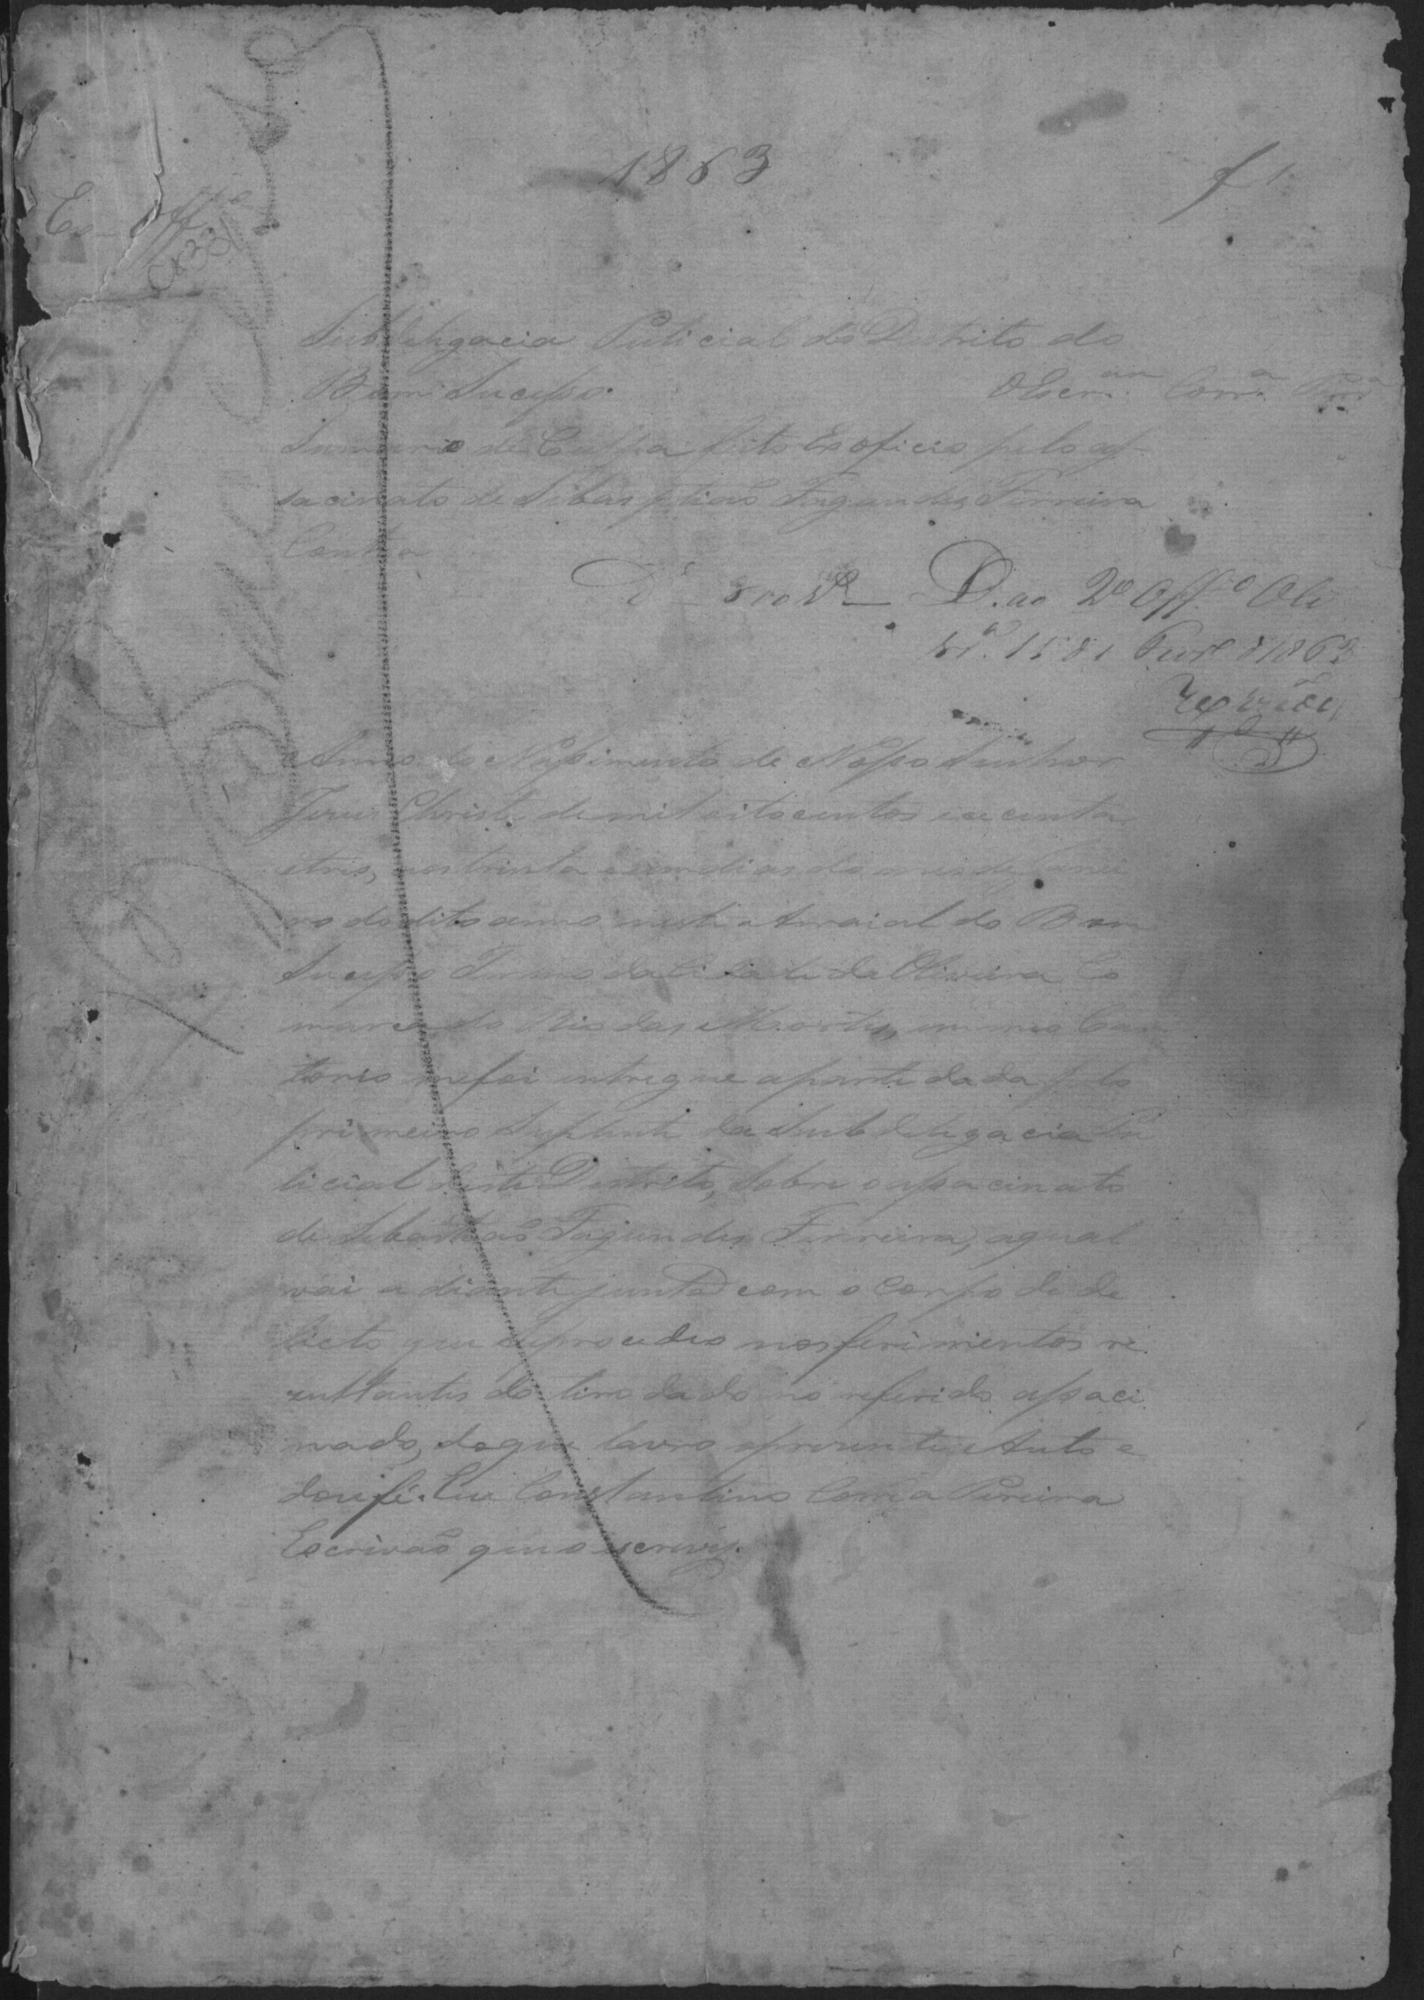 1863
f 1
Ex-Offº
Cx 33
Subdelegacia Pulicial do Destrito do
Bom Sucesso. OEscr.am Corr.a Per.a
Sumario de Culpa feito Exoficio pelo as
sacinato de Sibasptião Fagundes Ferreira
Contra
D. ao 2º Offº Oli
1581 1863
Anno do Nassimento de Nosso Senhor
Jesus Christo de mil oitocentos e secenta
e tres, aos trinta e um dias do mes de Janei
ro do dito anno neste Arraial do Bom
Sucesso Termo da Cidade da Oliveira Co
marca do Rio das Mortes, em meo Car
torio me foi entregue a parte dada pelo
primeiro Suplente da Subdelegacia Pu
licial deste Destrito, sobre o assacinato
de Sebastião Fagundes Ferreira, a qual
vai a diante junta com o Corpo de de
licto que se procedeo nos ferimentos re
zultantes do tiro dado no referido assaci
nado, do que lavro a presente Auto e
dou fé. Eu Constantino Correa Pereira
Escrivão que o escrevy.